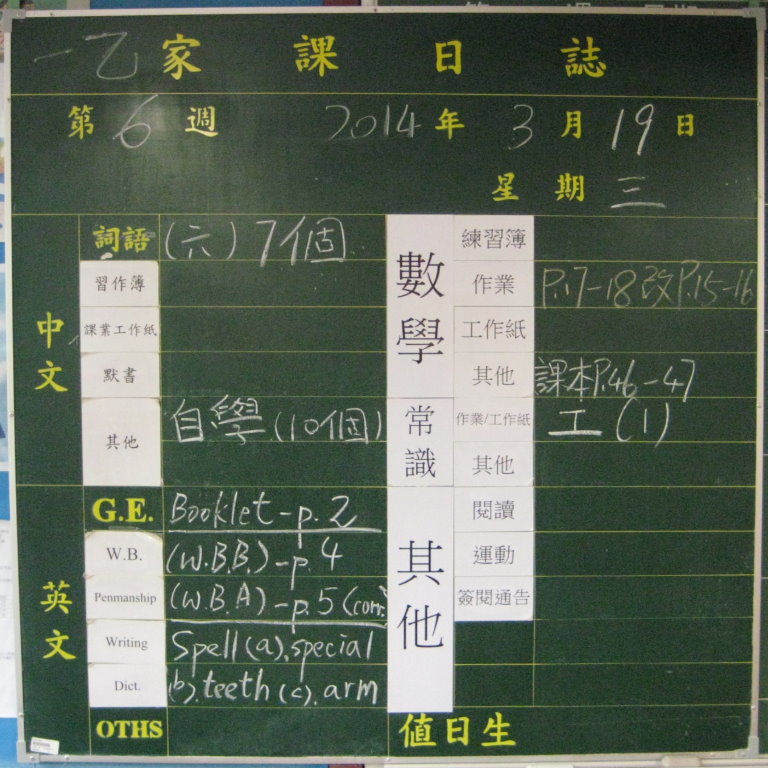 一乙家課日誌
第6週 2014年3月19日
星期三
中文
詞語 (六) 7個
習作簿
課業工作紙
默書
其他 自學(10個)
英文
G.E. Booklet-p.2
W.B. (W.B.B.)-p.4
Penmanship (W.B.A)-p.5 (corr.
Writing Spell (a).special
Dict. (b).teeth (c).arm
OTHS
數學
練習簿
作業 P.17-18改P.15-16
工作紙
其他 課本P.46-47
常識
作業/工作紙 工(1)
其他
其他
閱讀
運動
簽閱通告
值日生